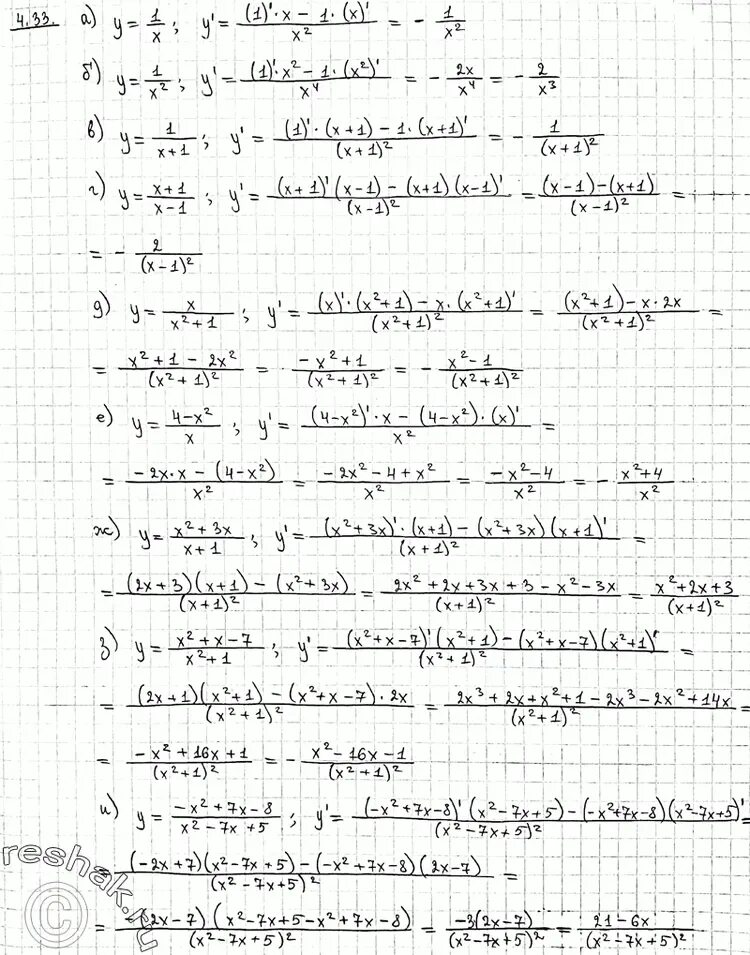 4.33. а) y = 1/x ; y' = ((1)'·x − 1·(x)')/x² = − 1/x²
б) y = 1/x² ; y' = ((1)'·x² − 1·(x²)')/x⁴ = − 2x/x⁴ = − 2/x³
в) y = 1/(x+1) ; y' = ((1)'·(x+1) − 1·(x+1)')/(x+1)² = − 1/(x+1)²
г) y = (x+1)/(x−1) ; y' = ((x+1)'(x−1) − (x+1)(x−1)')/(x−1)² = ((x−1)−(x+1))/(x−1)² =
= − 2/(x−1)²
д) y = x/(x²+1) ; y' = ((x)'·(x²+1) − x·(x²+1)')/(x²+1)² = ((x²+1) − x·2x)/(x²+1)² =
= (x²+1 − 2x²)/(x²+1)² = (−x²+1)/(x²+1)² = − (x²−1)/(x²+1)²
е) y = (4−x²)/x ; y' = ((4−x²)'·x − (4−x²)·(x)')/x² =
= (−2x·x − (4−x²))/x² = (−2x² − 4 + x²)/x² = (−x²−4)/x² = − (x²+4)/x²
ж) y = (x²+3x)/(x+1) ; y' = ((x²+3x)'·(x+1) − (x²+3x)(x+1)')/(x+1)² =
= ((2x+3)(x+1) − (x²+3x))/(x+1)² = (2x²+2x+3x+3−x²−3x)/(x+1)² = (x²+2x+3)/(x+1)²
з) y = (x²+x−7)/(x²+1) ; y' = ((x²+x−7)'(x²+1) − (x²+x−7)(x²+1)')/(x²+1)² =
= ((2x+1)(x²+1) − (x²+x−7)·2x)/(x²+1)² = (2x³+2x+x²+1−2x³−2x²+14x)/(x²+1)² =
= (−x²+16x+1)/(x²+1)² = − (x²−16x−1)/(x²+1)²
и) y = (−x²+7x−8)/(x²−7x+5) ; y' = ((−x²+7x−8)'(x²−7x+5) − (−x²+7x−8)(x²−7x+5)')/(x²−7x+5)² =
= ((−2x+7)(x²−7x+5) − (−x²+7x−8)(2x−7))/(x²−7x+5)² =
= (−(2x−7)(x²−7x+5−x²+7x−8))/(x²−7x+5)² = (−3(2x−7))/(x²−7x+5)² = (21−6x)/(x²−7x+5)²
reshak.ru
©